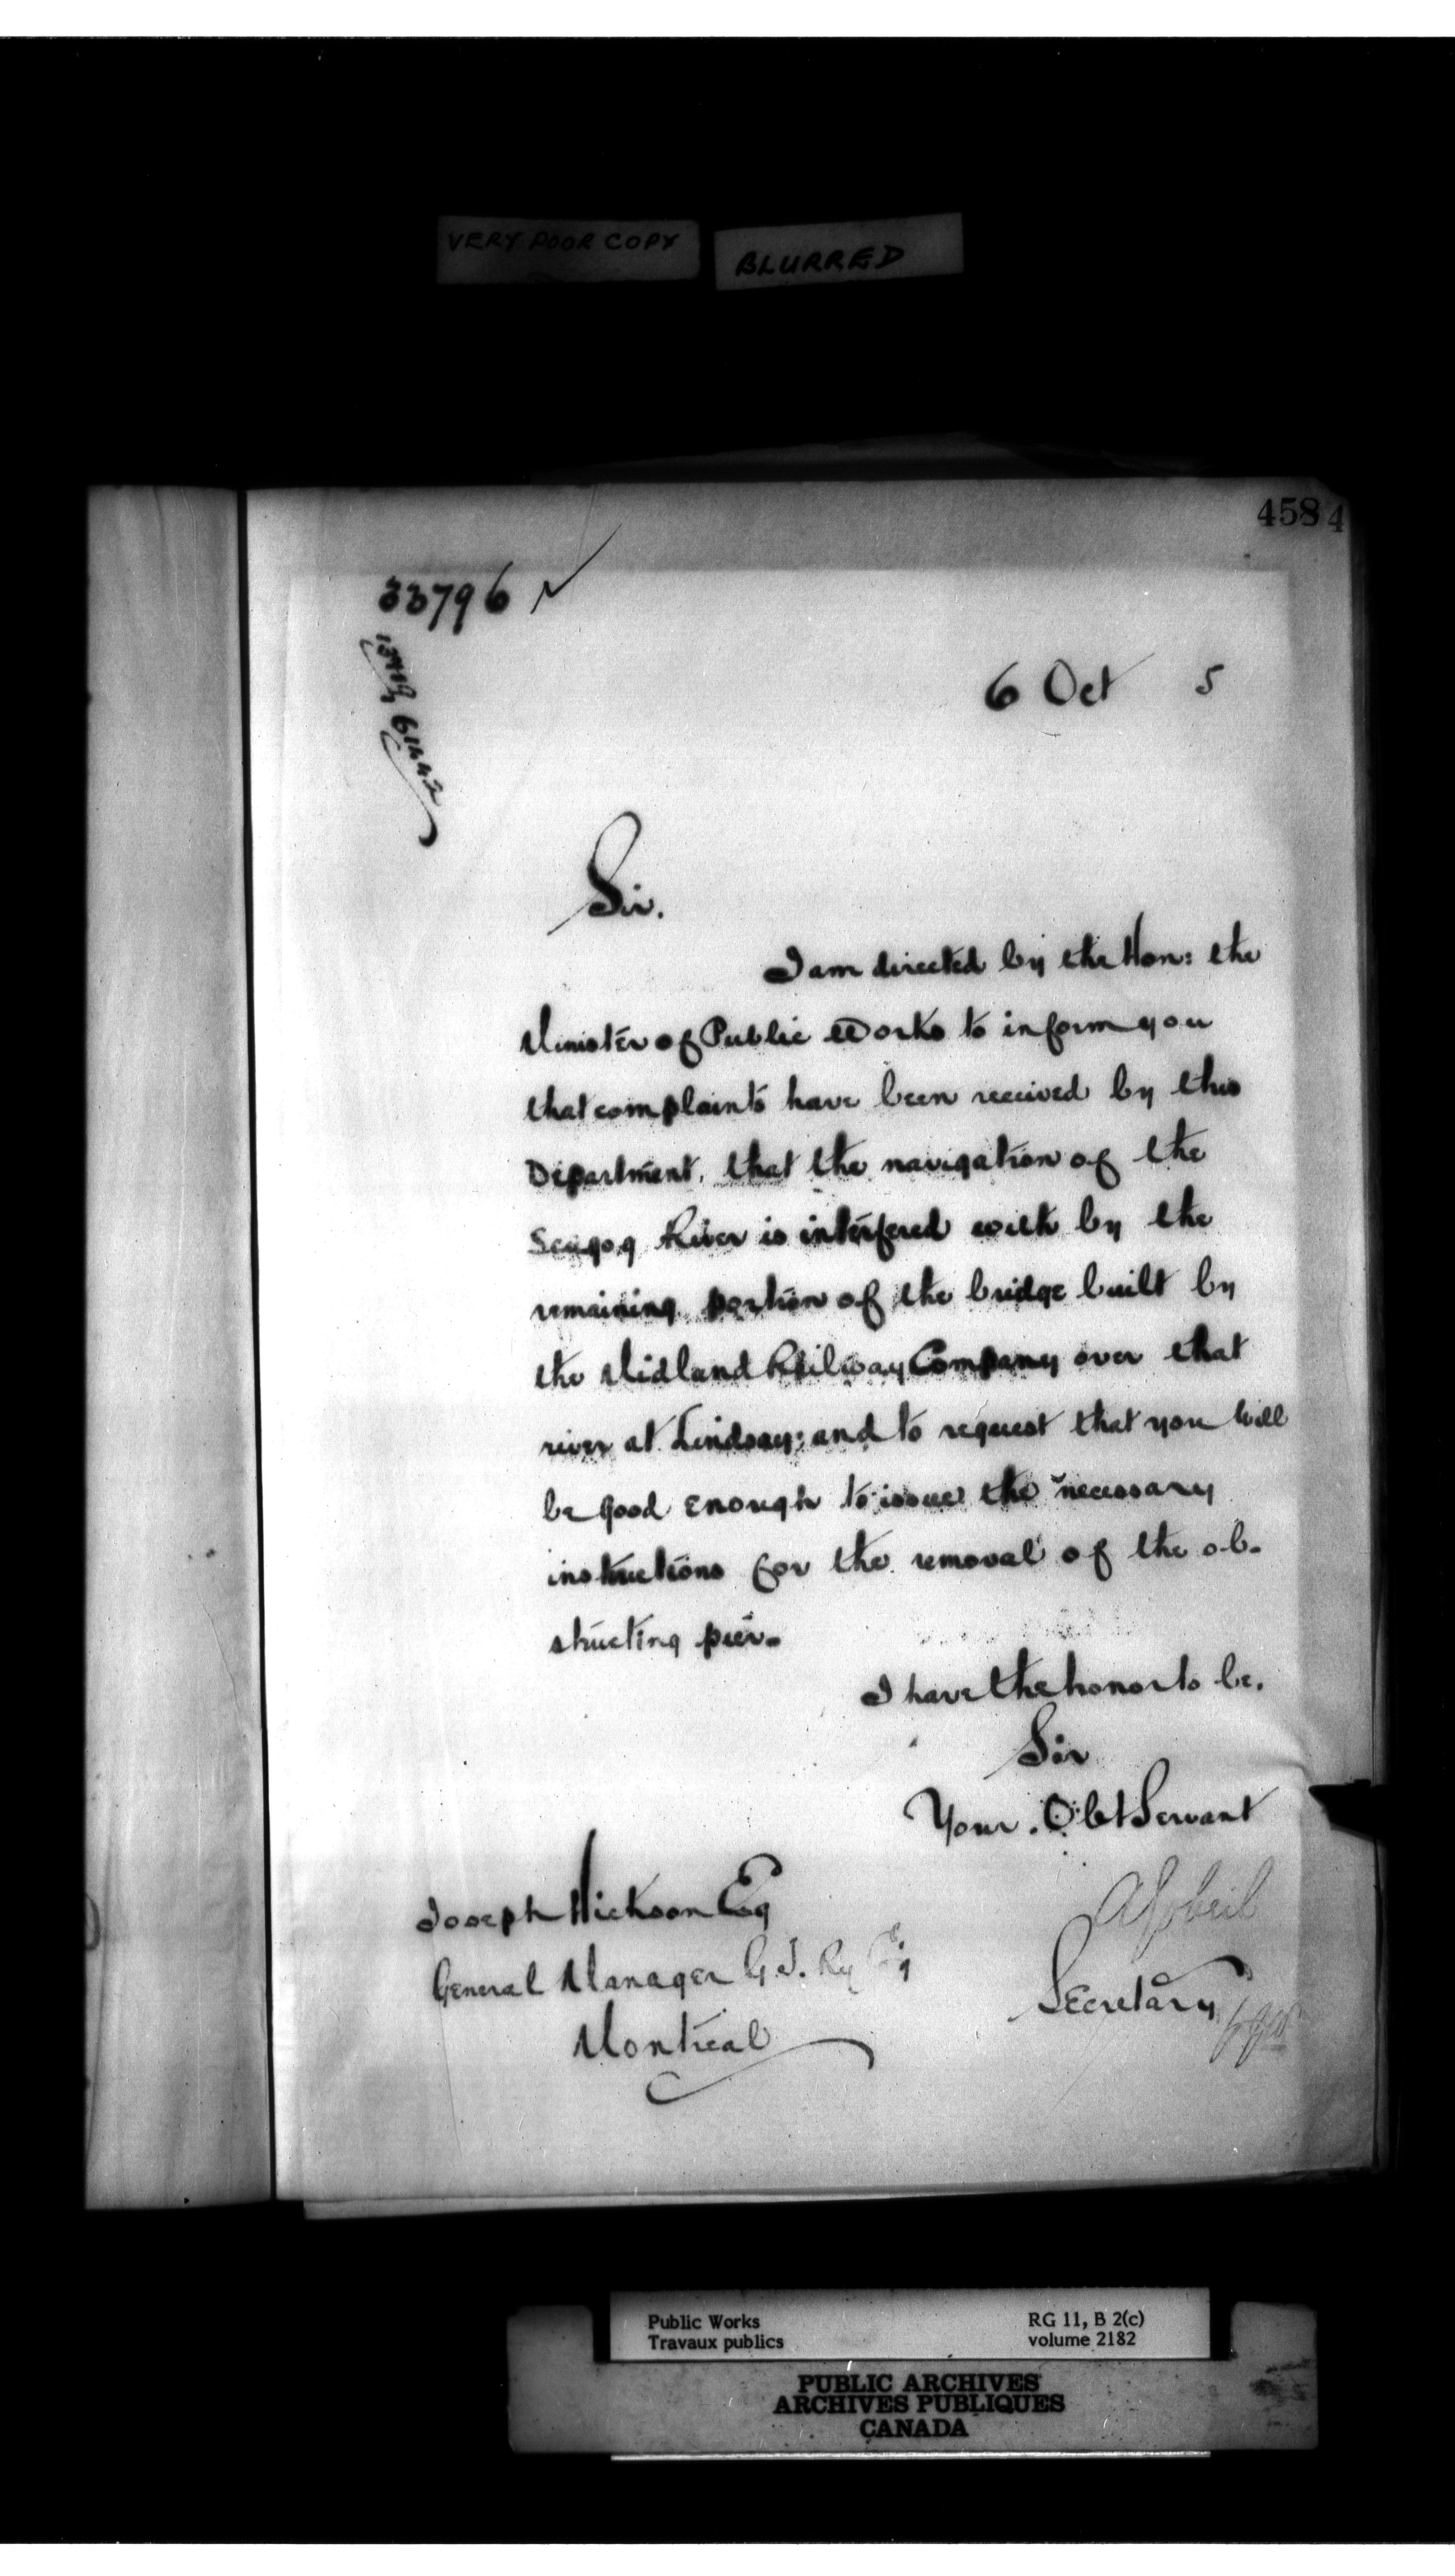 VERY POOR COPY
BLURRED
458 4
33796
61442
6 Oct 5
Sir.
I am directed by the Hon: the
Minister of Public Works to inform you
that complaints have been received by this
Department, that the navigation of the
Scugog River is interfered with by the
remaining portion of the bridge built by
the Midland Railway Company over that
river at Lindsay; and to request that you will
be good enough to issue the necessary
instructions for the removal of the ob-
structing pier.
I have the honor to be.
Sir
Your. Obt Servant
Joseph Hickson Esq
AGobeil
General Manager G.T. Ry Co'y
Secretary
Montreal
Public Works
Travaux publics
RG 11, B 2(c)
volume 2182
PUBLIC ARCHIVES
ARCHIVES PUBLIQUES
CANADA